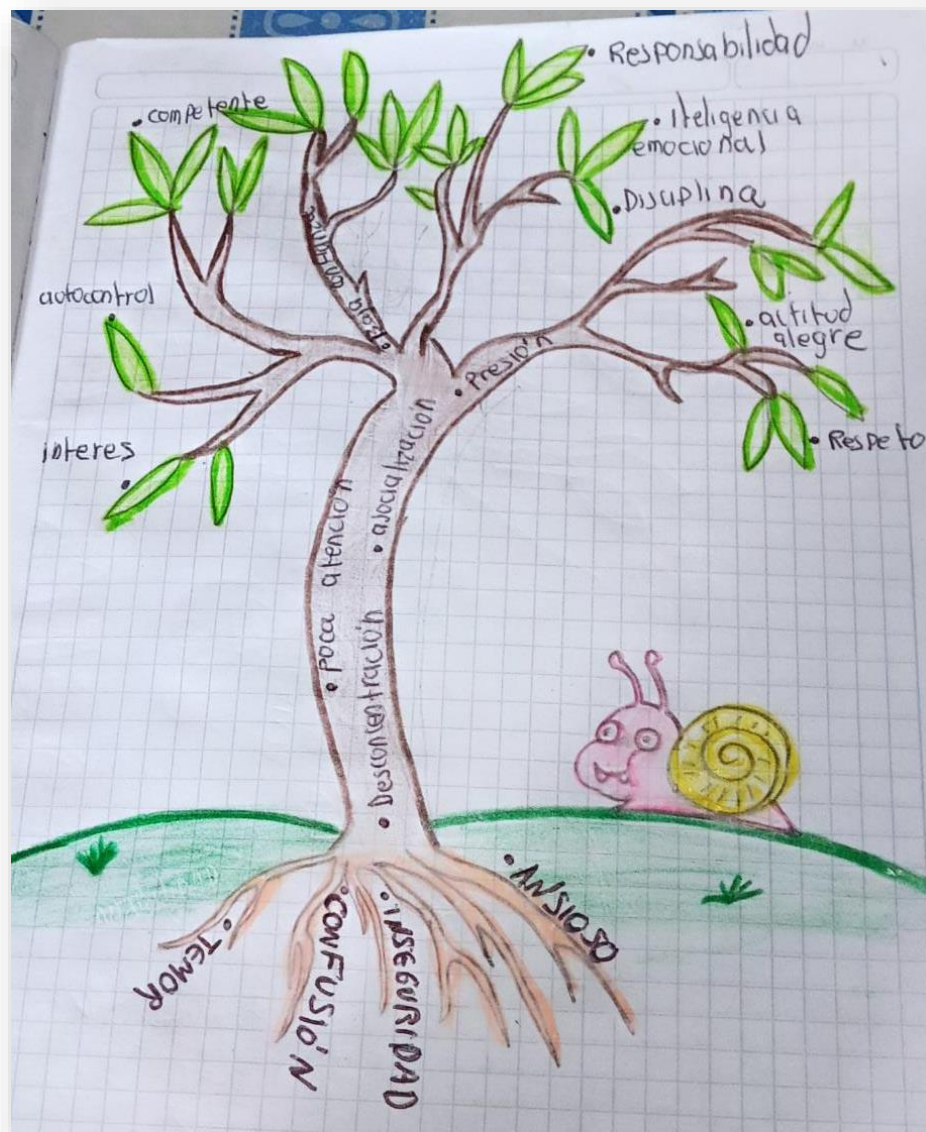 • Responsabilidad
• competente
• Iteligencia
emocional
• Disciplina
autocontrol
• Baja confianza
• actitud
alegre
• Presión
interes
• Respeto
• asocialización
• poca atención
• Desconcentración
• ANSIOSO
• TEMOR
• CONFUSIÓN
• INSEGURIDAD